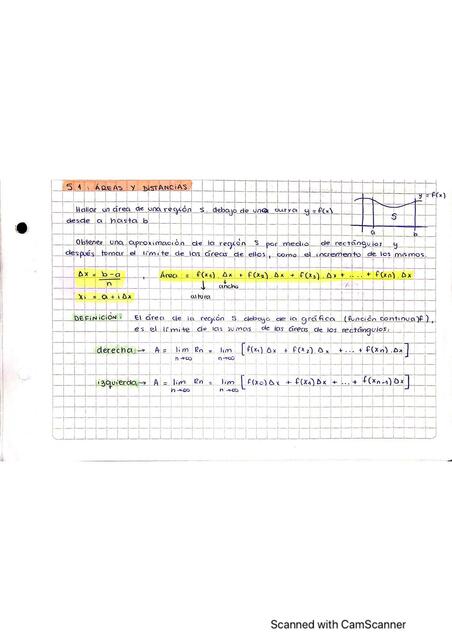 5.1: ÁREAS Y DISTANCIAS
y = f(x)
Hallar un área de una región S debajo de una curva y = f(x)
desde a hasta b
S
a b
Obtener una aproximación de la región S por medio de rectángulos y
después tomar el límite de las áreas de ellos, como el incremento de los mismos.
Δx = b-a/n , Área = f(x₁) . Δx + f(x₂) . Δx + f(x₃) . Δx + .... + f(xn) . Δx
↓ altura ↓ ancho
xi = a + iΔx
DEFINICIÓN: El área de la región S debajo de la gráfica (función continua f),
es el límite de las sumas de las áreas de los rectángulos.
derecha → A = lim n→∞ Rn = lim n→∞ [f(x₁) Δx + f(x₂) Δx + ... + f(xn) . Δx]
izquierda → A = lim n→∞ Rn = lim n→∞ [f(x₀) Δx + f(x₁) Δx + ... + f(xn-1) Δx]
Scanned with CamScanner